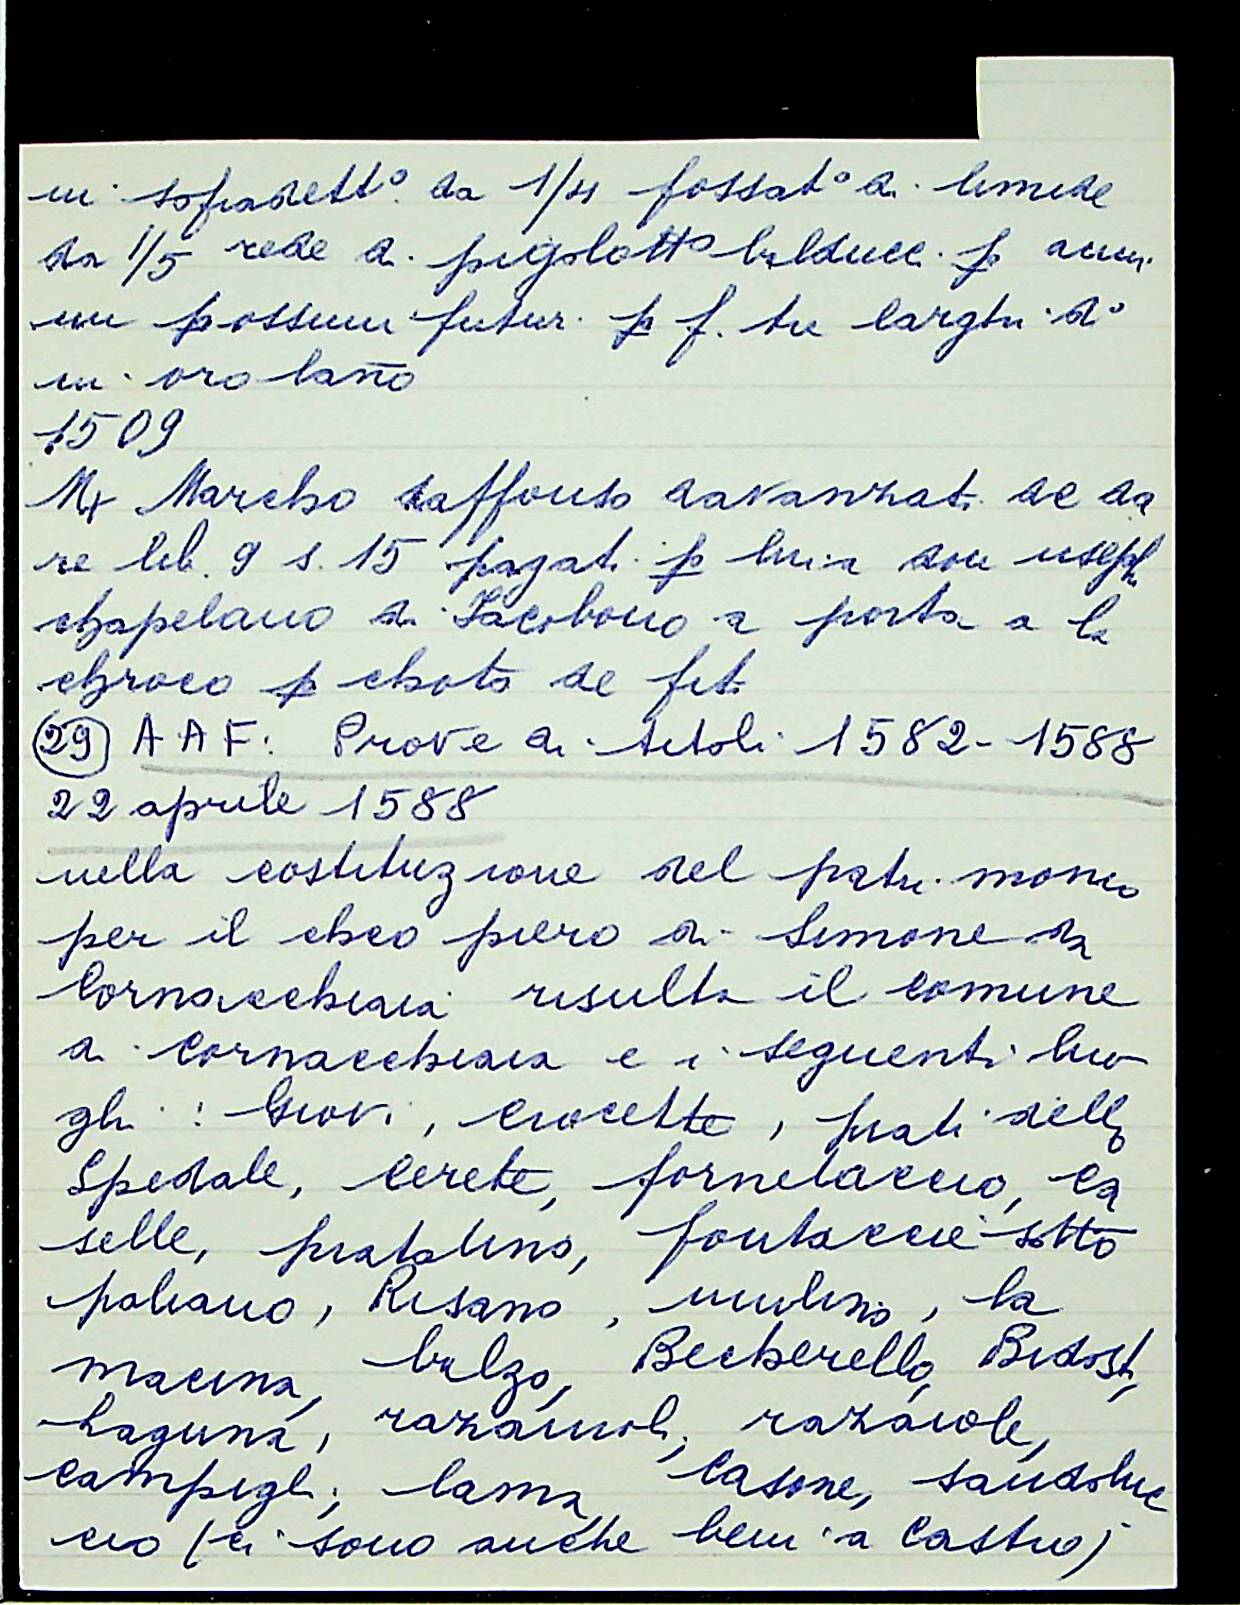 ni sopradetto da 1/4 fossato di limide
da 1/5 rede di pigolotto balducci p anni
un possimi futur. p f. tre larghi di
in oro
1509
Mr Marcho daffonso davanzati de da
re lib. 9 s. 15 pagati p lui a don
chapelano di Jacobono a porta a la
chroce p choto de fit.
(29) A A F: Prove di titoli 1582-1588
22 aprile 1588
nella costituzione del patrimonio
per il chco piero di Simone da
Cornacchiaia risulta il comune
di Cornacchiaia e i seguenti luo
ghi: Giovi, Crocette, prati dello
Spedale, Cerete, fornelaccio, Ca
selle, pratolino, fontaccie sotto
poliano, Risano, mulino, la
macina, balzo, Beccherello, Bidosti,
Laguna, razaiuoli, razaiole,
Campigli, lama, Casone, sandoluc
cio (ci sono anche beni a Castro)